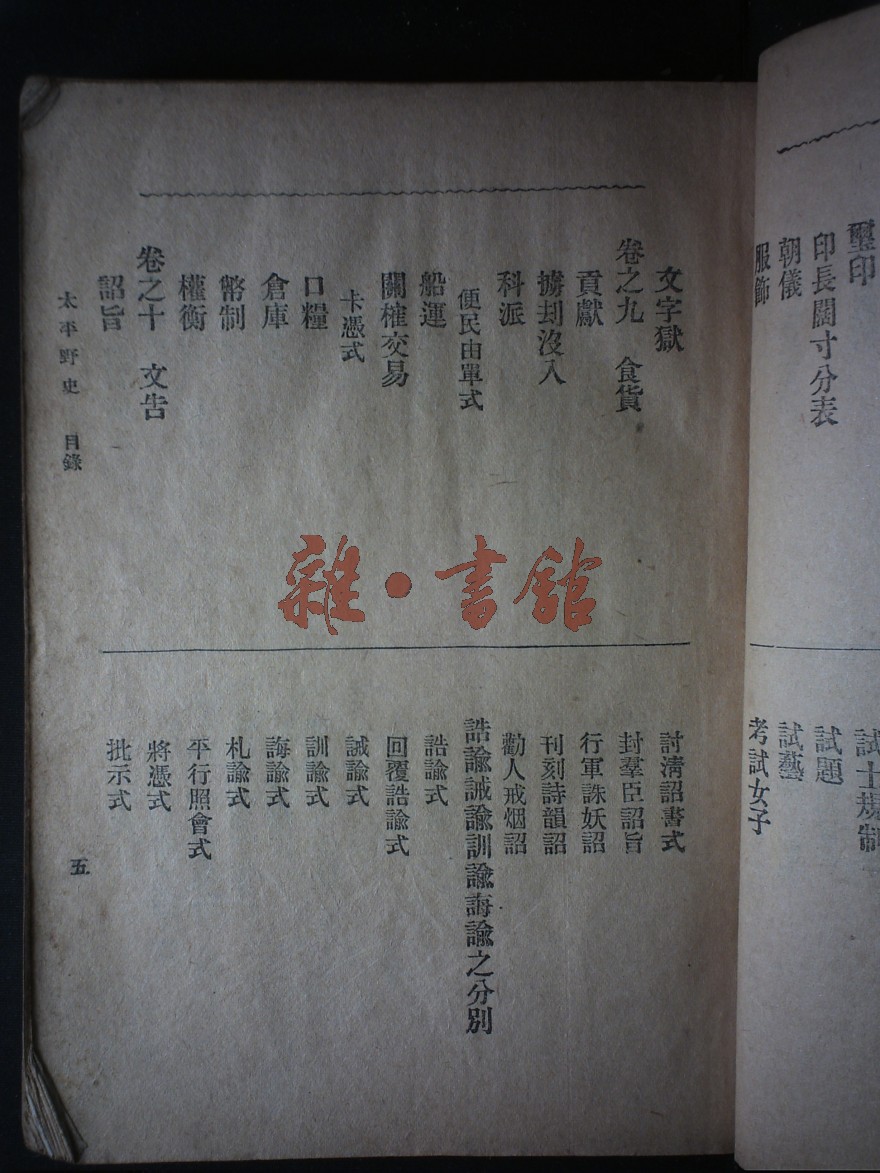 璽印
印長闊寸分表
朝儀
服飾
試士規制
試題
試藝
考試女子
文字獄
卷之九 食貨
貢獻
擄刦沒入
科派
便民由單式
船運
關榷交易
卡憑式
口糧
倉庫
幣制
權衡
卷之十 文告
詔旨
討淸詔書式
封羣臣詔旨
行軍誅妖詔
刊刻詩韻詔
勸人戒烟詔
誥諭誡諭訓諭誨諭之分別
誥諭式
回覆誥諭式
誡諭式
訓諭式
誨諭式
札諭式
平行照會式
將憑式
批示式
太平野史 目錄
五
雜·書館